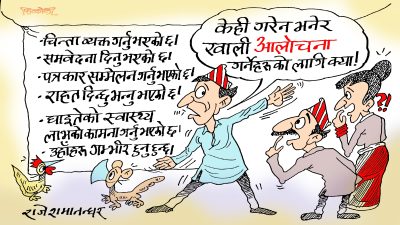 - चिन्ता व्यक्त गर्नुभएको छ।
- समवेदना दिनुभएको छ।
- पत्रकार सम्मेलन गर्नुभएको छ।
- राहत दिन्छु भन्नु भएको छ।
- घाइतेको स्वास्थ्य
लाभको कामना गर्नुभएको छ।
- उहाँहरू गम्भीर हुनुहुन्छ।
केही गरेन भनेर
खाली आलोचना
गर्नेहरूको लागि क्या!
?!
राजेशमानन्धर